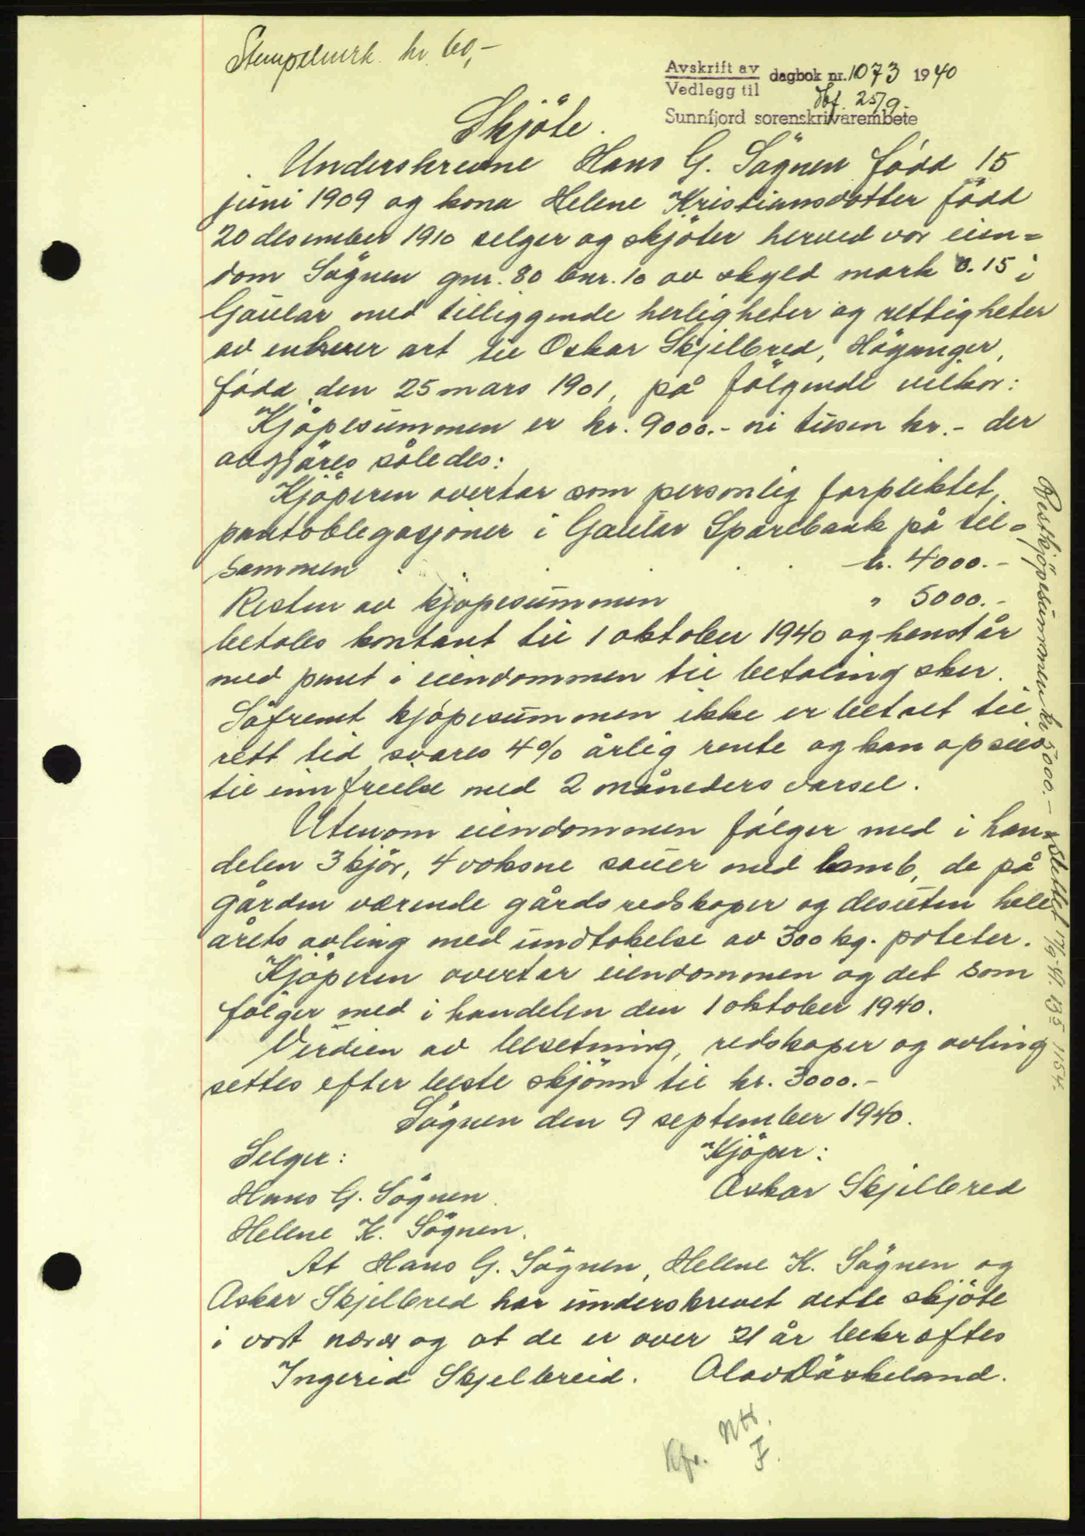 Stempelmrk. kr 60,-
Avskrift av
Vedlegg til
dagbok nr. 1073 1940
25/9
Sunnfjord sorenskrivarembete
Skjöte.
Underskrevne Hans G. Sögnen född 15
juni 1909 og kona Helene Kristiansdotter född
20 desember 1910 selger og skjöter herved vor eien=
dom Sögnen gnr. 80 bnr. 10 av skyld mark 0.15 i
Gaular med tilliggende herligheter og rettigheter
av enhver art til Oskar Skjelbred, Höyanger,
född den 25 mars 1901, på fölgende vilkor:
Kjöpesummen er kr. 9000.- ni tusen kr.- der
avgjöres således:
Kjöperen overtar som personlig forpliktet,
pantoblegasjoner i Gaular Sparebank på til=
sammen kr. 4000.-
Resten av kjöpesummen " 5000.-
betales kontant til 1 oktober 1940 og henstår
med pant i eiendommen til betaling sker.
Såfremt kjöpesummen ikke er betalt til
rett tid svares 4% årlig rente og kan opsies
til innfrielse med 2 måneders varsel.
Utenom eiendommen fölger med i han=
delen 3 kjör, 4 voksne sauer med lamb, de på
gården værende gårdsredskaper og desuten hele
årets avling med undtakelse av 300 kg. poteter.
Kjöperen overtar eiendommen og det som
fölger med i handelen den 1 oktober 1940.
Verdien av besetning, redskaper og avling
settes efter beste skjönn til kr. 3000.-
Sögnen den 9 september 1940.
Selger: Kjöper:
Hans G. Sögnen. Oskar Skjelbred
Helene K. Sögnen.
At Hans G. Sögnen, Helene K. Sögnen og
Oskar Skjelbred har underskrevet dette skjöte
i vort nærvær og at de er over 21 år bekræftes
Ingerid Skjelbreid. Olav
Kfr. NH.
F.
Restkjöpesummen kr 5000.- slettet
1154.